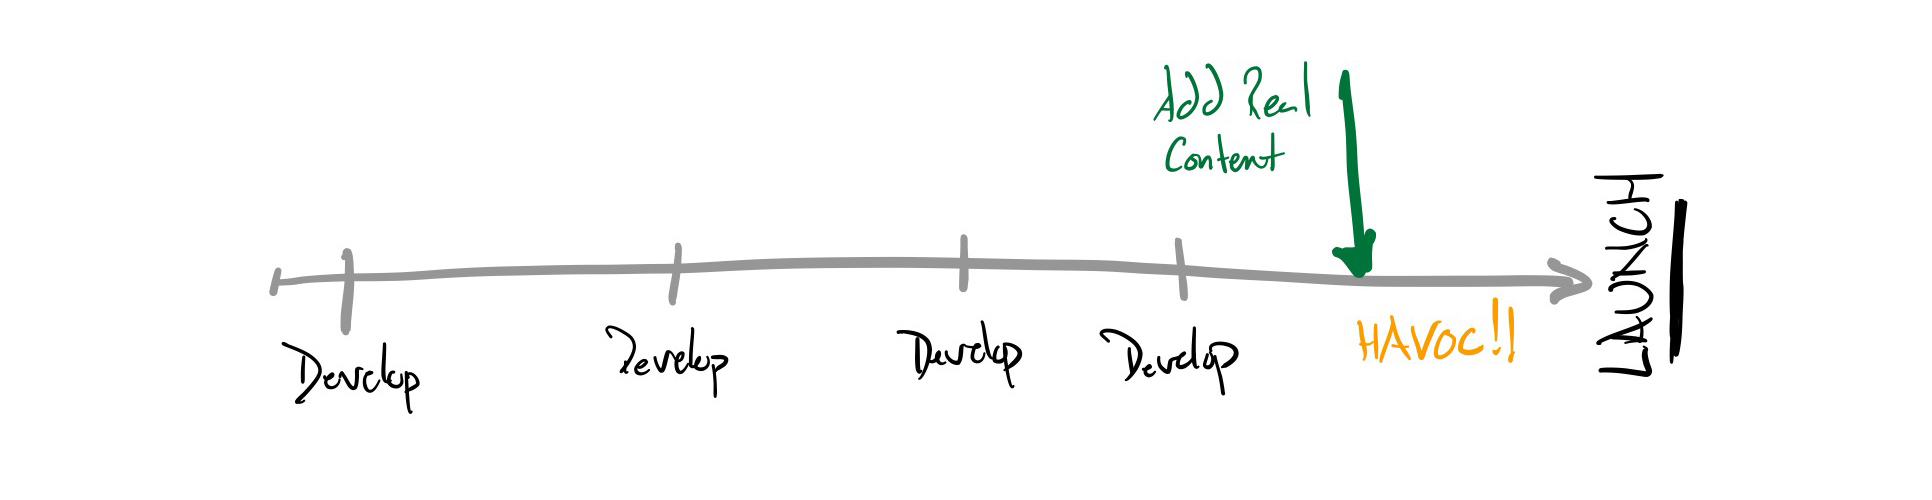 Add Real
Content
Develop
Develop
Develop
Develop
HAVOC!!
LAUNCH